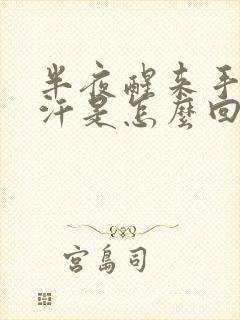 半夜醒来手
汗是怎麼回
宮島司